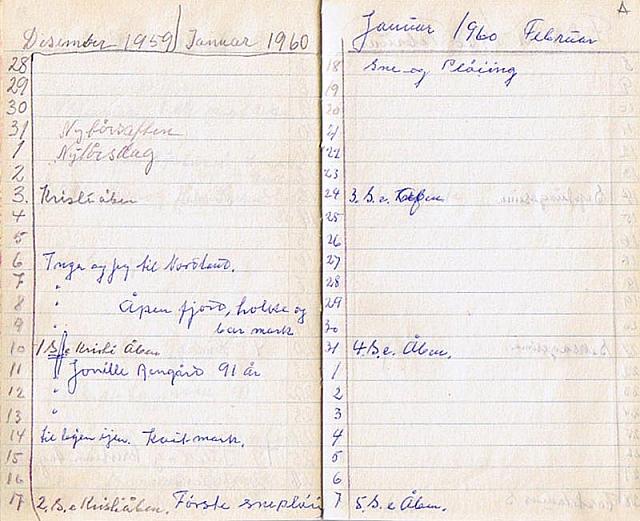 Desember 1959 Januar 1960
28
29
30
31 Nyttårsaften
1 Nyttårsdag
2
3. Kristi åben
4
5
6 Inga og jeg til Nordland.
7 "
8 " Åpen fjord, holke og
9 " bar mark
10 1 S. e Kristi Åben
11 " 91 år
12 "
13 "
14 til igjen. Kvit mark.
15
16
17 2. S. e Kristi åben. Første
A
Januar 1960 Februar
18 Sne og Pløiing
19
20
21
22
23
24 3. S. e.
25
26
27
28
29
30
31 4. S. e. Åben.
1
2
3
4
5
6
7 5. S. e Åben.